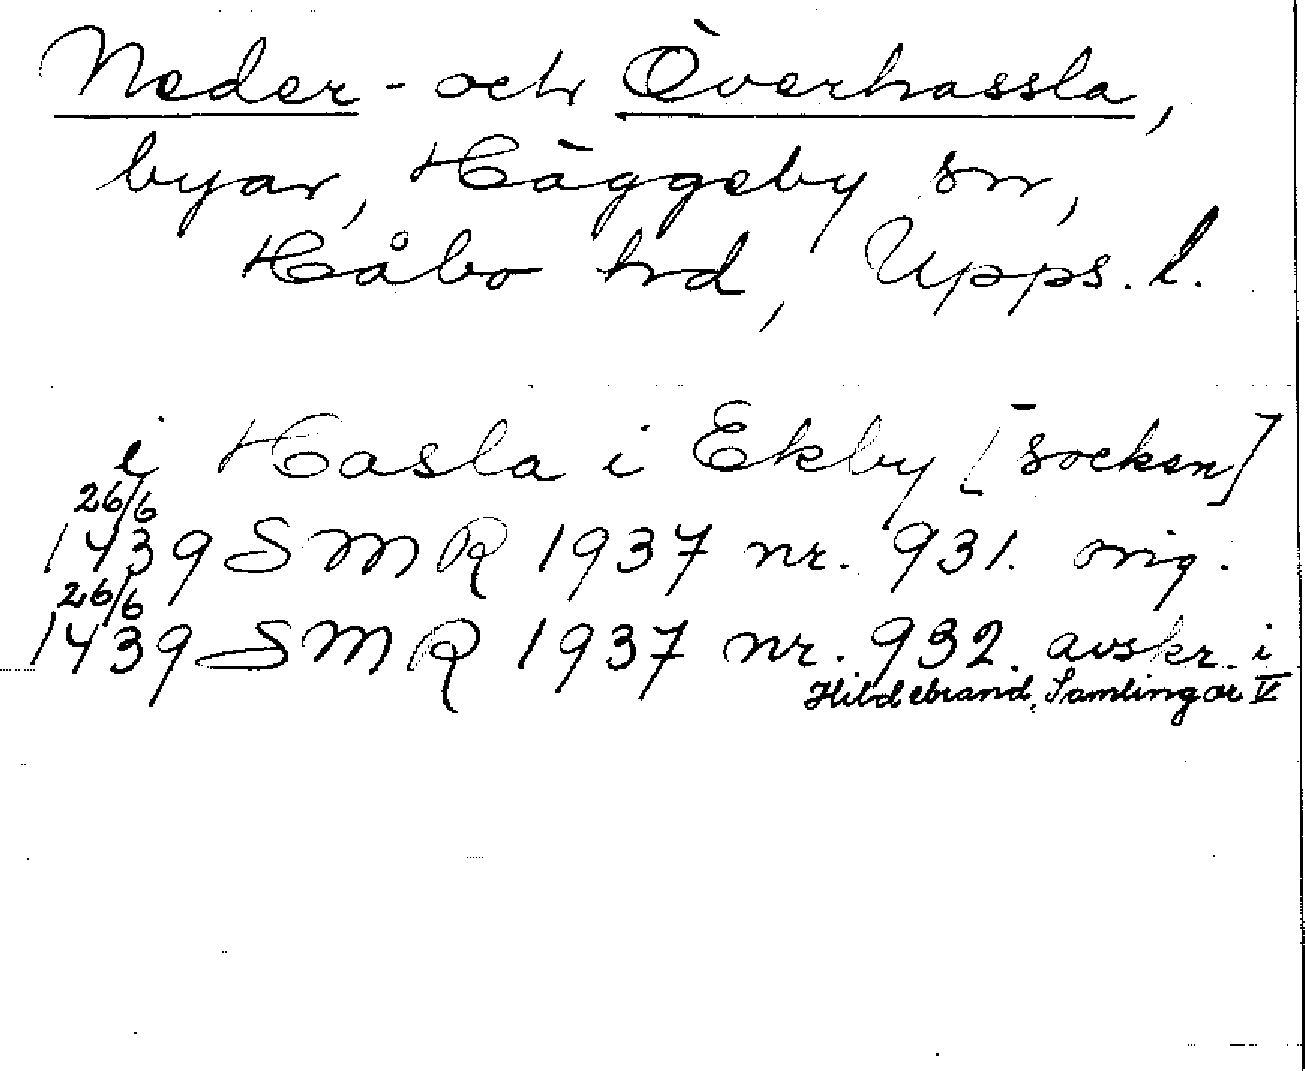 Neder- och Överhassla,
byar, Häggeby sn,
Håbo hd, Upps. l.
i Hasla i Ekby [socken]
26/6
1439 SMR 1937 nr. 931. orig.
26/6
1439 SMR 1937 nr. 932. avskr. i
Hildebrand, Samlingar V